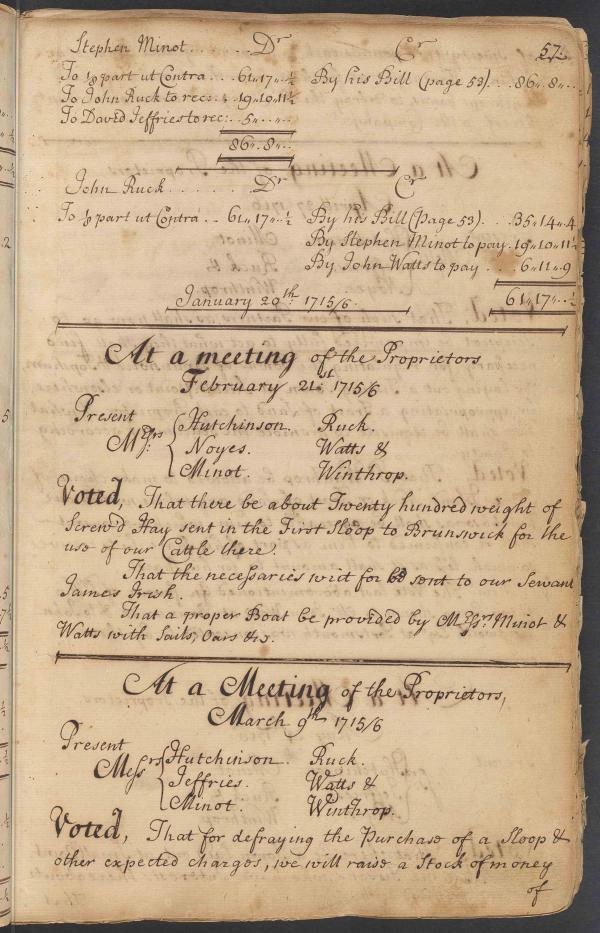 57.
Stephen Minot . . . . . . . Dr Cr
To ⅛ part ut Contra . . . 61,,17,,-½ By his Bill (page 53) . . . 86,,8,,..
To John Ruck to rec: . . 19,,10,,11½
To David Jeffries to rec: . . 5,,..,,..
86,,8,,..
John Ruck . . . . . . . Dr Cr
To ⅛ part ut Contra . . 61,,17,,-½ By his Bill (page 53) . . . 35,,14,,4
By Stephen Minot to pay . 19,,10,,11½
By John Watts to pay . . . 6,,11,,9
61,,17,,-½
January 20th. 1715/6.
At a meeting of the Proprietors
February 21st. 1715/6.
Present
Messrs { Hutchinson. Ruck.
Noyes. Watts &
Minot. Winthrop.
Voted, That there be about Twenty hundred weight of
Screw'd Hay sent in the First Sloop to Brunswick for the
use of our Cattle there.
That the necessaries writ for be sent to our Servant
James Irish.
That a proper Boat be provided by Messrs. Minot &
Watts with Sails, Oars &c.
At a Meeting of the Proprietors,
March 9th 1715/6
Present
Messrs { Hutchinson. Ruck.
Jeffries. Watts &
Minot. Winthrop.
Voted, That for defraying the Purchase of a Sloop &
other expected charges, we will raise a Stock of money
of